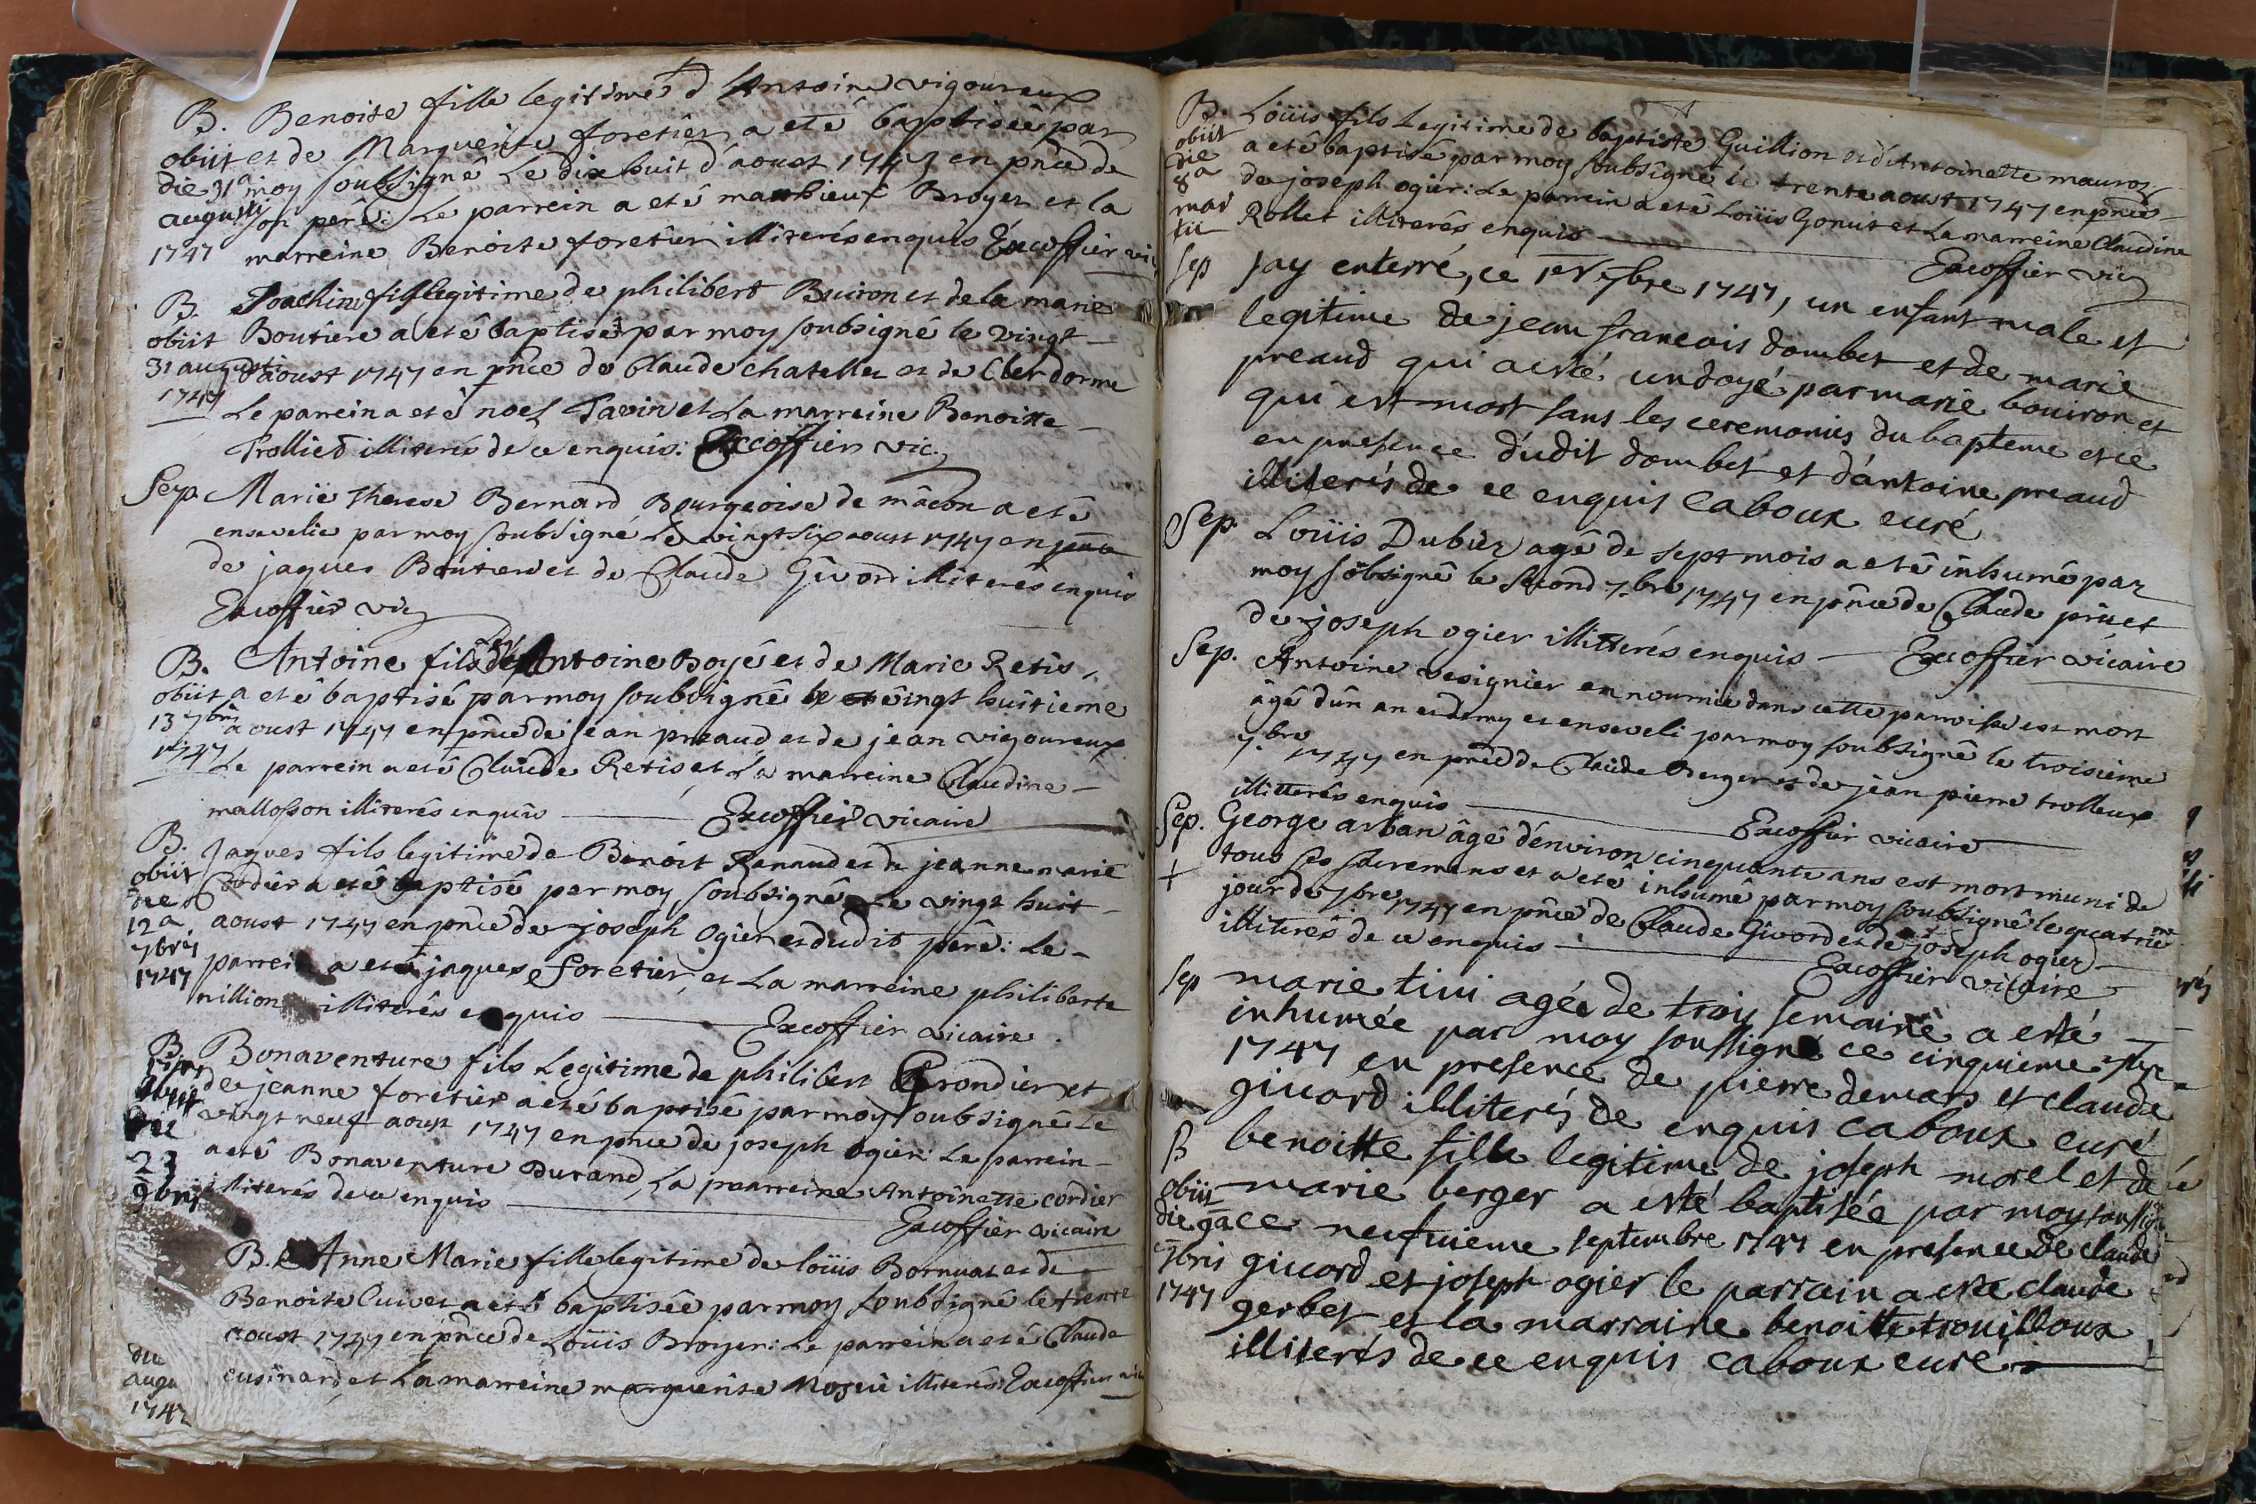 B. Benoite fille legitime d'Antoine vigoureux
obiit et de Marguerite foretier a eté baptisée par
die 31a moy soubsigné Le dix huit d'aoust 1747 en pnce de
augusti son pere: Le parrein a eté mathieux Broyer et la
1747 marreine Benoite foretier illiterés enquis Excoffier vic
B. Joachim fils legitime de philibert Buiron et de la marie
obiit Boutiere a eté baptisé par moy soubsigné le vingt
31 augusti d'aoust 1747 en pnce de Claude chatellet et de Cler dorme
1747 Le parrein a eté noel Tavin et La marreine Benoitte
Trolliet illiterés de ce enquis: Excoffier vic.
Sep. Marie therese Bernard Bourgeoise de mâcon a eté
ensevelie par moy soubsigné Le vingt six aoust 1747 en pnce
de jaques Boutier et de Claude Givord illiterés enquis
Excoffier vic
B. Antoine fils de Antoine Boyé et de Marie Retis
obiit a eté baptisé par moy soubsigné le vingt huitieme
13 7bris aoust 1747 en pnce de jean preaud et de jean vigoureux
1747 Le parrein a eté Claude Retis et La marreine Claudine
mallosson illiterés enquis Excoffier vicaire
B. Jaques fils legitime de Benoit Renaud et de jeanne marie
obiit Cordier a eté baptisé par moy soubsigné Le vingt huit
die 12a aoust 1747 en pnce de joseph Ogier et dudit pere: Le
7bris parrein a eté jaques foretier et La marreine philiberte
1747 nillion illiterés enquis Excoffier vicaire
B. Bonaventure fils Legitime de philibert Grondier et
obiit de jeanne foretier a eté baptisé par moy soubsigné Le
die vingt neuf aoust 1747 en pnce de joseph Ogier: Le parrein
23 a eté Bonaventure Durand La marreine Antoinette cordier
9bris illiterés de ce enquis Excoffier vicaire
B. Anne Marie fille legitime de loüis Bornuat et de
Benoite Cuivet a eté baptisée par moy soubsigné le trente
aoust 1747 en pnce de Loüis Broyer: Le parrein a eté Claude
die augu cusinard et La marreine marguerite illiterés Excoffier vic
1747
B. Loüis fils Legitime de baptiste Guillion et d'Antoinette mauros
obiit a eté baptisé par moy soubsigné le trente aoust 1747 en pnce
die 8a de joseph ogier: Le parrein a eté Loüis Gonut et La marreine Claudine
mar tii Rollet illiterés enquis Excoffier vic
Sep Jay enterré, ce 1er 7bre 1747, un enfant male et
legitime de jean francois dombet et de marie
preaud qui a esté undoyé par marie bouiron et
qui est mort sans les ceremonies du bapteme et ce
en presence dudit dombet et d'antoine preaud
illiterés de ce enquis Caboux curé
Sep. Loüis Dubüz agé de sept mois a eté inhumé par
moy sobsigné le second 7.bre 1747 en pnce de Claude prü et
de joseph ogier illitterés enquis Excoffier vicaire
Sep. Antoine vesignier en nourrice dans cette parroisse est mort
âgé d'un an et demy et enseveli par moy soubsigné le troisieme
7.bre 1747 en pnce de Claude Berger et de jean pierre trolleux
illitterés enquis Excoffier vicaire
Sep. George arban âgé d'environ cinquante ans est mort muni de
+ tous ses sacremens et a eté inhumé par moy soubsigné le quatrieme
jour de 7bre 1747 en pnce de Claude Givord et de joseph ogier
illiterés de ce enquis Excoffier vicaire
Sep marie tivi agée de trois semaine a esté
inhumée par moy soussigné ce cinquieme 7bre
1747 en presence de pierre demars et claude
givord illiterés de enquis Caboux curé
B benoitte fille legitime de joseph morel et de
obiit marie berger a esté baptisée par moy soussigné
die 9a ce neufvieme septembre 1747 en presence de claude
7bris givord et joseph ogier le parrain a esté claude
1747 gerbet et la marraine benoitte trouilloux
illiterés de ce enquis Caboux curé